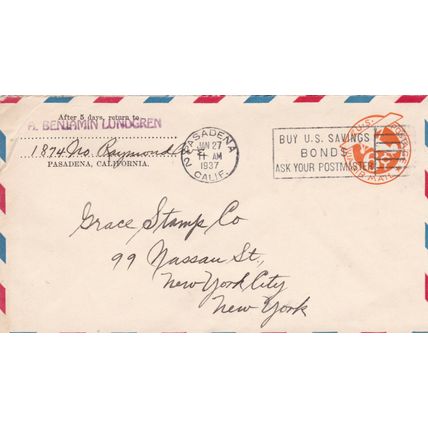 After 5 days, return to
A. BENJAMIN LUNDGREN
1874 No. Raymond
PASADENA, CALIFORNIA.
PASADENA
2
JAN 27
11 AM
1937
CALIF.
BUY U.S. SAVINGS
BONDS
ASK YOUR POSTMASTER
U.S. POSTAGE
6
AIR MAIL
Grace Stamp Co
99 Nassau St,
New York City
New York